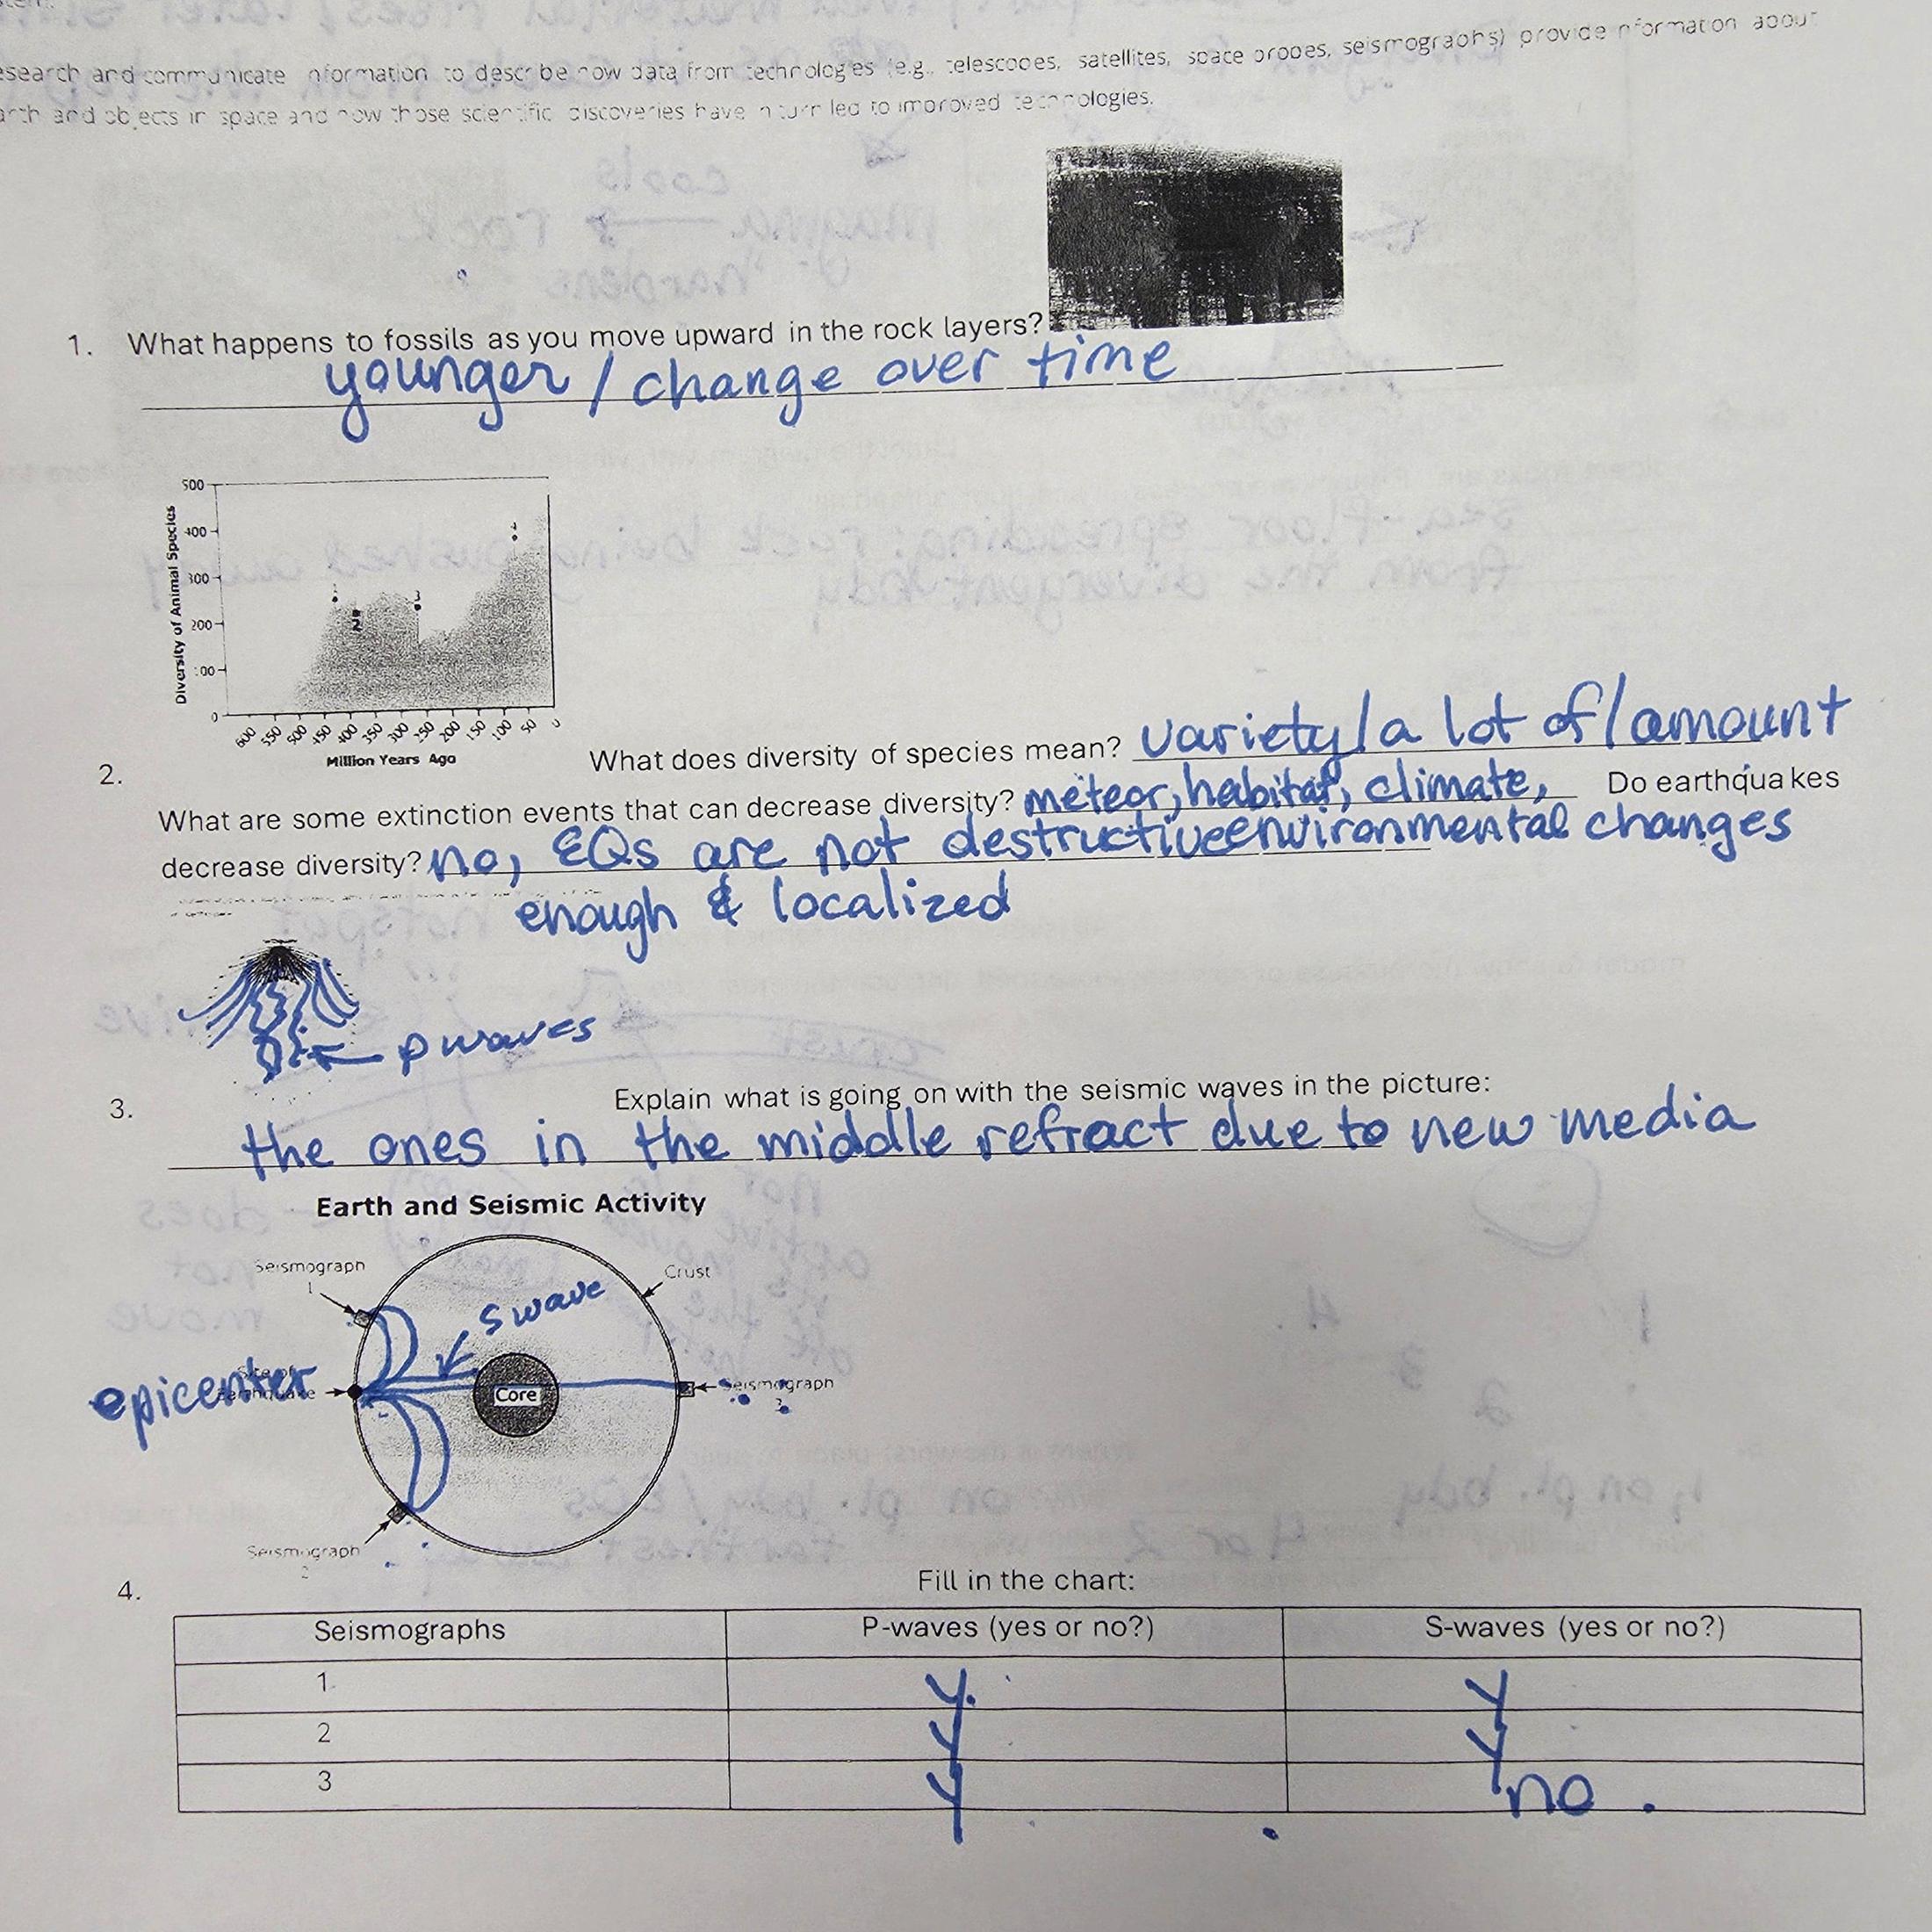 esearch and communicate information to describe how data from technologies (e.g., telescopes, satellites, space probes, seismographs) provide information about
arth and objects in space and how those scientific discoveries have in turn led to improved technologies.
1. What happens to fossils as you move upward in the rock layers?
younger / change over time
Diversity of Animal Species
500
400
300
200
100
0
1
2
3
4
600 550 500 450 400 350 300 250 200 150 100 50 0
Million Years Ago
2. What does diversity of species mean? variety / a lot of / amount
What are some extinction events that can decrease diversity? meteor, habitat, climate, Do earthquakes
environmental changes
decrease diversity? no, EQs are not destructive
enough & localized
p waves
3. Explain what is going on with the seismic waves in the picture:
the ones in the middle refract due to new media
Earth and Seismic Activity
Seismograph
1
Crust
S wave
epicenter
Site of
Earthquake
Core
Seismograph
3
Seismograph
2
4. Fill in the chart:
Seismographs P-waves (yes or no?) S-waves (yes or no?)
1. y y
2 y y
3 y no